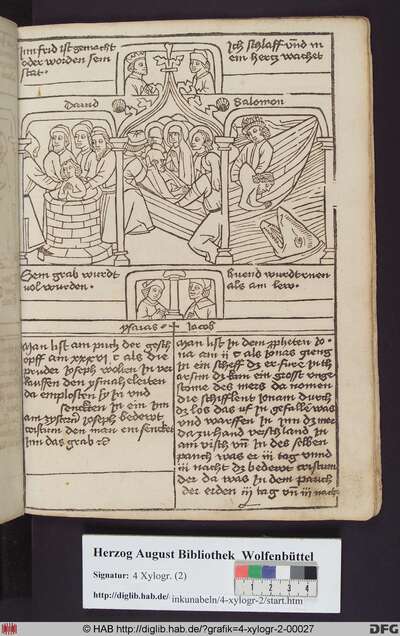 Im frid ist gemacht
oder worden sein
stat ·
Ich schlaff vnd m
ein hercz wachet
David
Salomon
Sein grab wurdt
vol wurden ·
huend wurdt ruen
als am lew ·
ysaias · Iacob
Man list am puch der gesch
öpff am XXXVII · c als die
prüder Ioseph wolten in ver
kauffen den ysmaheleiten
da enplosten sy in vnd
senckten in ein
am zystern Ioseph bedewt
cristum den man ein sencket
Inn das grab
Man list in dem ppheten Io
na am ii c als Ionas gieng
in ein scheff dz er fure in th
arsim dz kam ein grosst vnge
stome des mers da nomen
die schifflent Ionam durch
dz los das uf in gefalle was
vnd warffen in inn dz mer
da zu hand verschland in
am visch vn in des selben
pauch was er iii tag vnnd
iii nacht dz bedewt cristum
der da was in dem pauch
der erden iii tag vn iii nacht
Herzog August Bibliothek Wolfenbüttel
Signatur: 4 Xylogr. (2)
http://diglib.hab.de/ inkunabeln/4-xylogr-2/start.htm
© HAB http://diglib.hab.de/?grafik=4-xylogr-2-00027
DFG